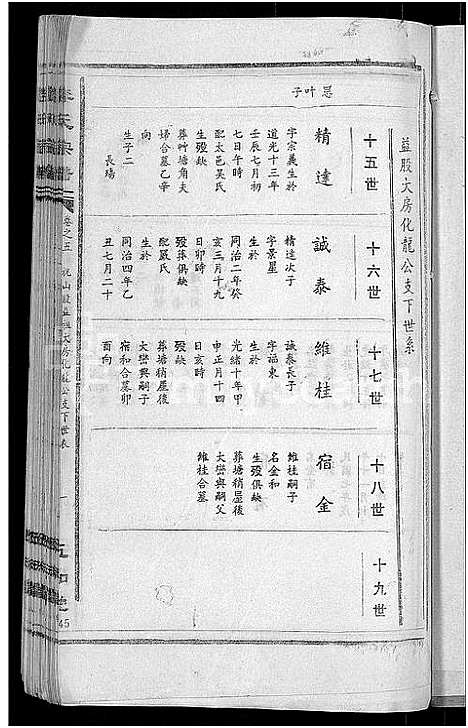 益股大房化龍公支下世系
十五世
忌叶子
精達
字宗義生於
道光十三年
壬辰七月初
七日午時
配太邑吳氏
生殁缺
葬艸塘角夫
婦合墓乙辛
向
生子二
長瑒
十六世
誠泰
精達次子
字景星
生於
同治二年癸
亥三月十九
日卯時
殁葬俱缺
配嚴氏
生於
同治四年乙
丑七月二十
十七世
維桂
誠泰長子
字福東
生於
光緒十年甲
申正月十四
日亥時
殁缺
葬塘稍屋後
大巒與嗣子
宿和合墓卯
酉向
十八世
宿金
維桂嗣子
名金和
生殁俱缺
葬塘稍屋後
大巒與嗣父
維桂合墓
十九世
卷之五
祝山股益祖大房化龍公支下世表
一
45